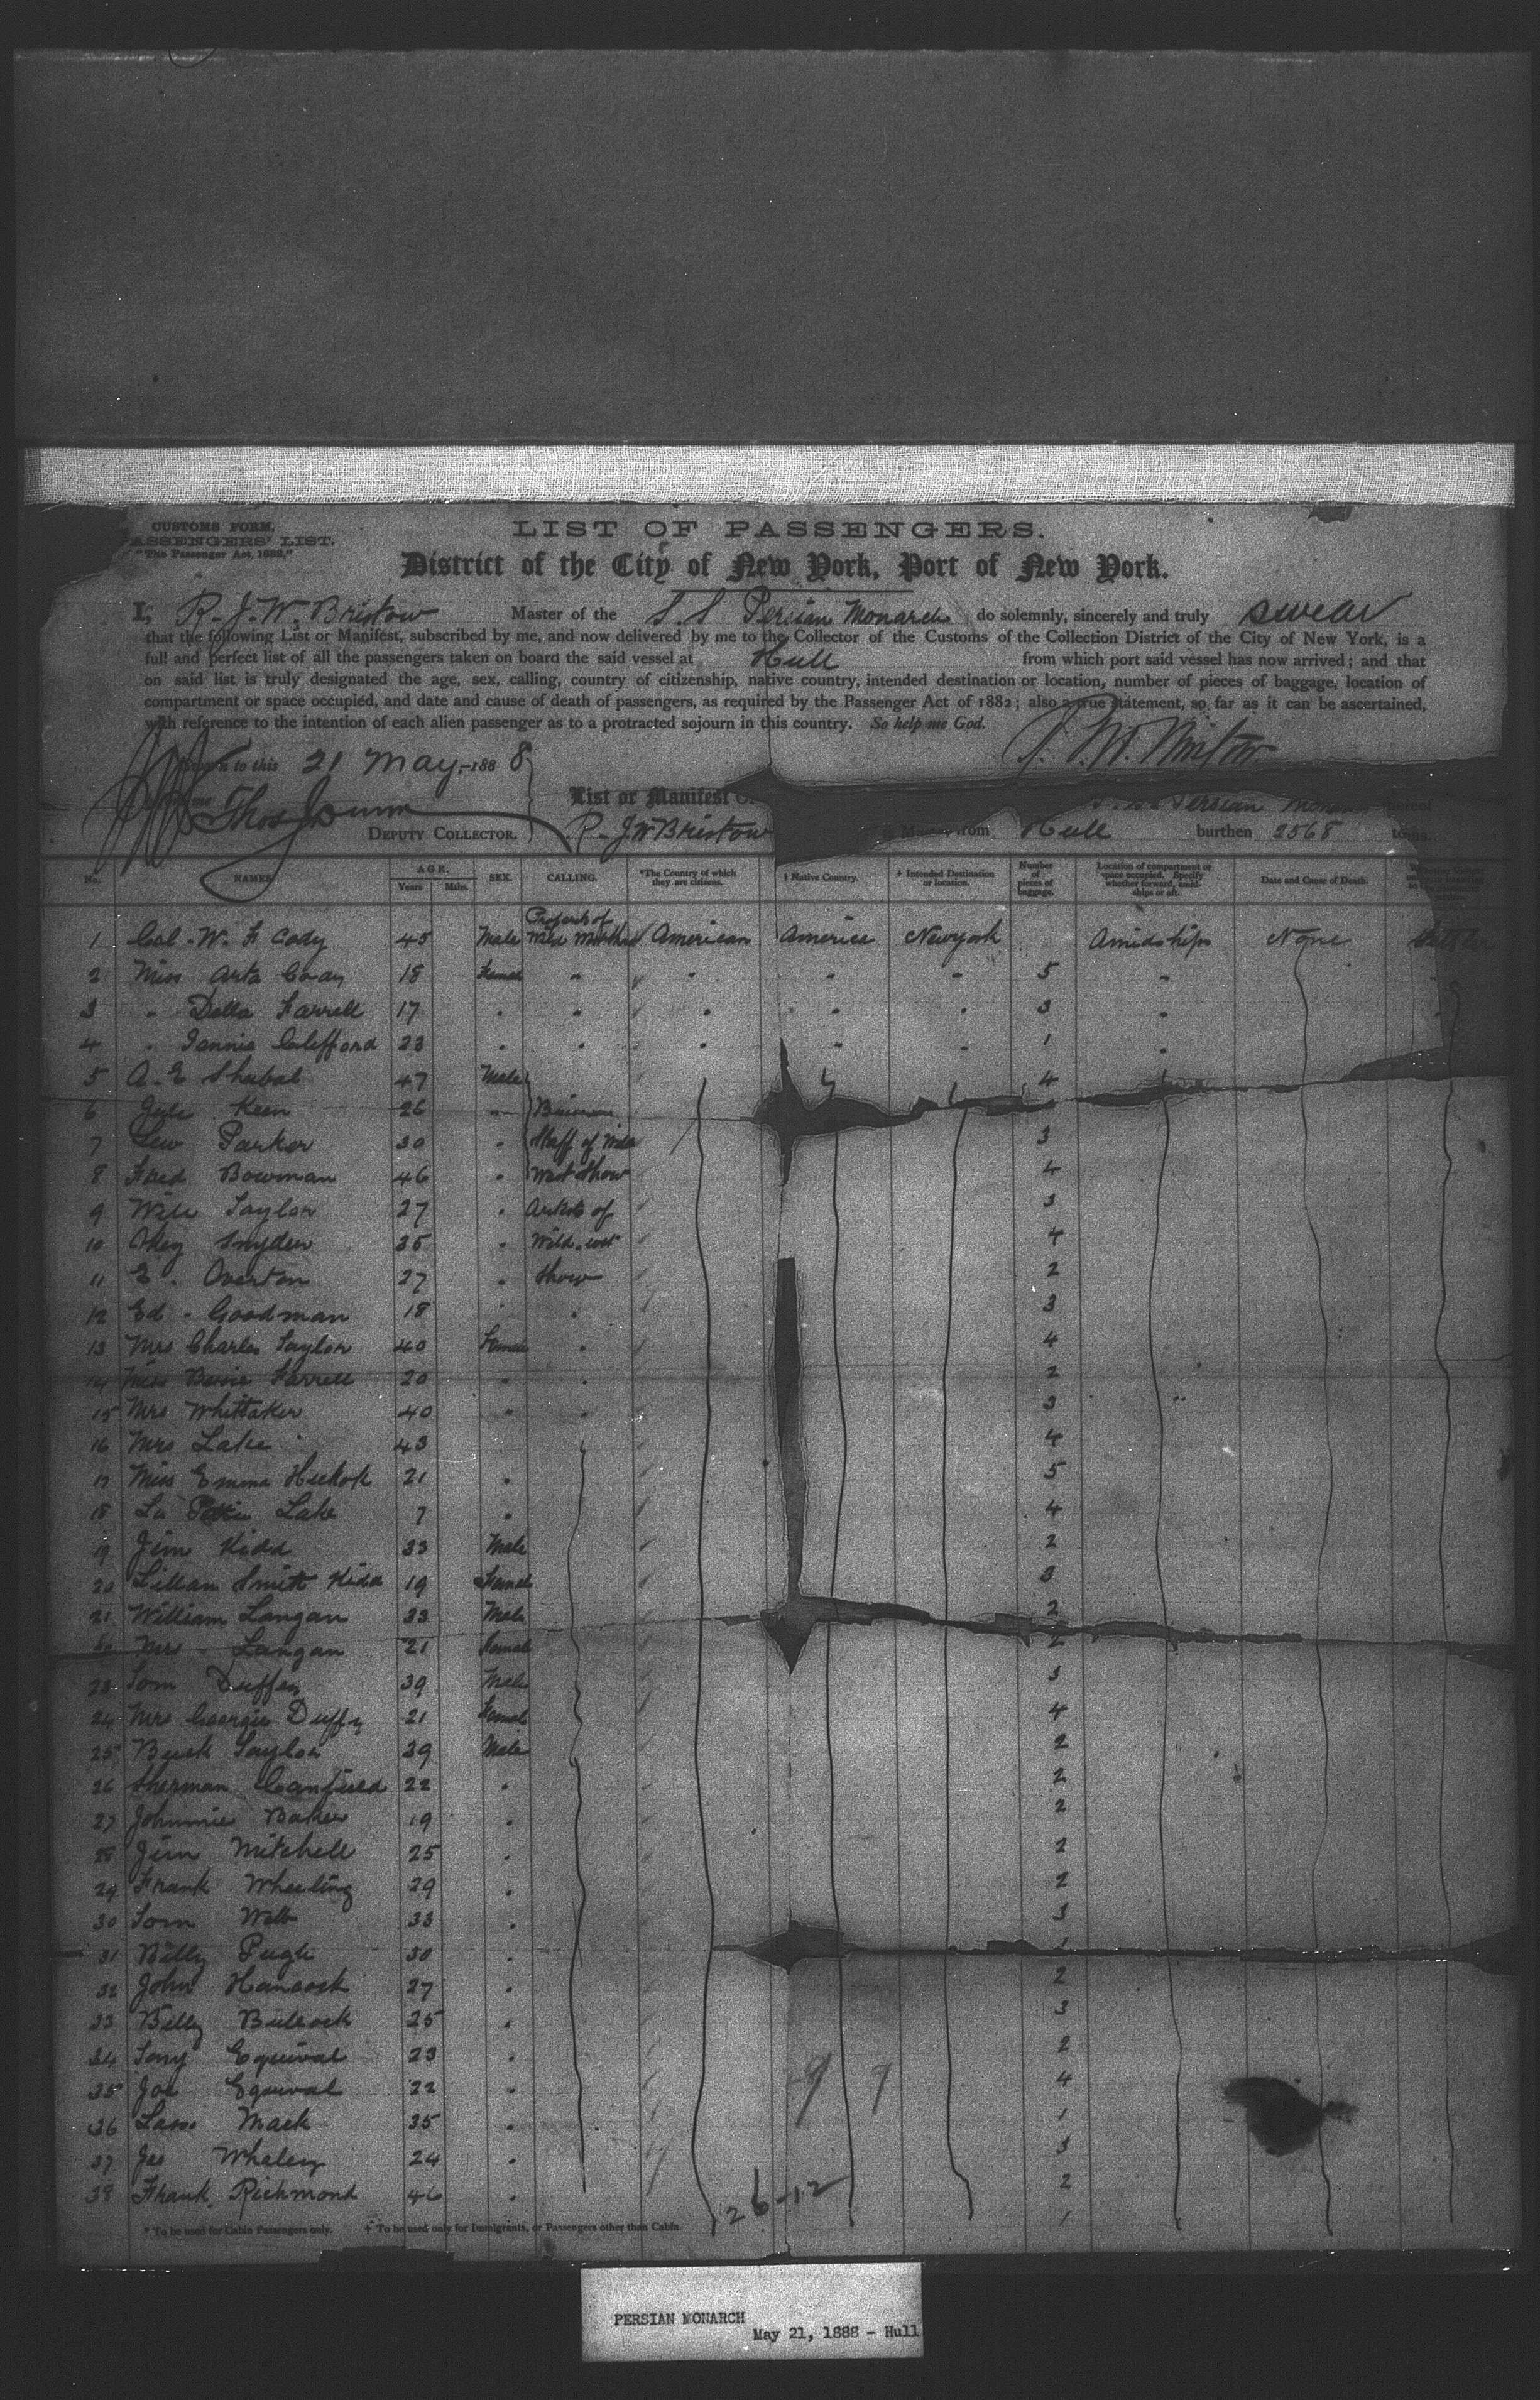 CUSTOMS FORM.
PASSENGERS' LIST.
"The Passenger Act, 1882."
LIST OF PASSENGERS.
District of the City of New York, Port of New York.
I, R. J. W. Bristow Master of the S.S Persian Monarch do solemnly, sincerely and truly swear
that the following List or Manifest, subscribed by me, and now delivered by me to the Collector of the Customs of the Collection District of the City of New York, is a
full and perfect list of all the passengers taken on board the said vessel at Hull from which port said vessel has now arrived; and that
on said list is truly designated the age, sex, calling, country of citizenship, native country, intended destination or location, number of pieces of baggage, location of
compartment or space occupied, and date and cause of death of passengers, as required by the Passenger Act of 1882; also a true statement, so far as it can be ascertained,
with reference to the intention of each alien passenger as to a protracted sojourn in this country. So help me God.
to this 21 May, 1888
List or Manifest
Persian Monarch
DEPUTY COLLECTOR. R. J W Bristow from Hull burthen 2568 tons.
No. NAMES. AGE. Years Mths. SEX. CALLING. *The Country of which they are citizens. † Native Country. † Intended Destination or location. Number of pieces of baggage. Location of compartment or space occupied. Specify whether forward, amidships or aft. Date and Cause of Death.
1 Col. W. F Cody 45 Male American America Newyork Amidships None
2 Miss Arta Cody 18 Female " " " " " 5 "
3 " Della Farrell 17 " " " " " 3 "
4 " Fannie Clifford 23 " " " " " 1 "
5 A. E Shebal 47 Male 4
6 Jule Keen 26 "
7 Lew Parker 30 " Staff of Wild 3
8 Fred Bowman 46 " West Show 4
9 Will Taylor 27 " Artists of 3
10 Snyder 35 " Wild west 4
11 E. Overton 27 " Show 2
12 Ed. Goodman 18 " " 3
13 Mrs Charles Taylor 40 Female " 4
14 Miss Bessie Farrell 20 " " 2
15 Mrs Whittaker 40 " " 3 "
16 Mrs Lake 43 4
17 Miss Emma Hickok 21 " 5
18 Lake 7 " 4
19 Jim Kidd 33 Male 2
20 Lillian Smith Kidd 19 Female 3
21 William Langan 33 Male 2
Mrs Langan 21 Female 2
23 Tom Duffey 39 Male 3
24 Mrs Georgie Duffy 21 Female 4
25 Buck Taylor 39 Male 2
26 Sherman Canfield 22 " 2
27 Johnnie Baker 19 " 2
28 Jim Mitchell 25 " 2
29 Frank Wheeling 29 " 2
30 Tom Webb 33 " 3
31 Billy Pugh 30 " 1
32 John Hancock 27 " 2
33 Billy Bullock 25 " 3
34 Tony Equival 23 " 2
35 Joe Equival 22 " 4
36 Mack 35 " 1
37 Jas Whaley 24 " 3
38 Frank Richmond 46 " 2
1
9 9
26-12
* To be used for Cabin Passengers only. † To be used only for Immigrants, or Passengers other than Cabin.
PERSIAN MONARCH
May 21, 1888 - Hull